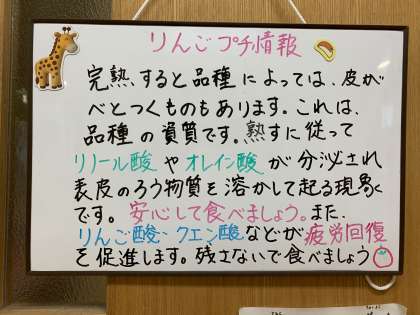 りんごプチ情報
完熟すると品種によっては、皮が
べとつくものもあります。これは、
品種の資質です。熟すに従って
リノール酸やオレイン酸が分泌され
表皮のろう物質を溶かして起る現象
です。安心して食べましょう。また、
りんご酸、クエン酸などが疲労回復
を促進します。残さないで食べましょう